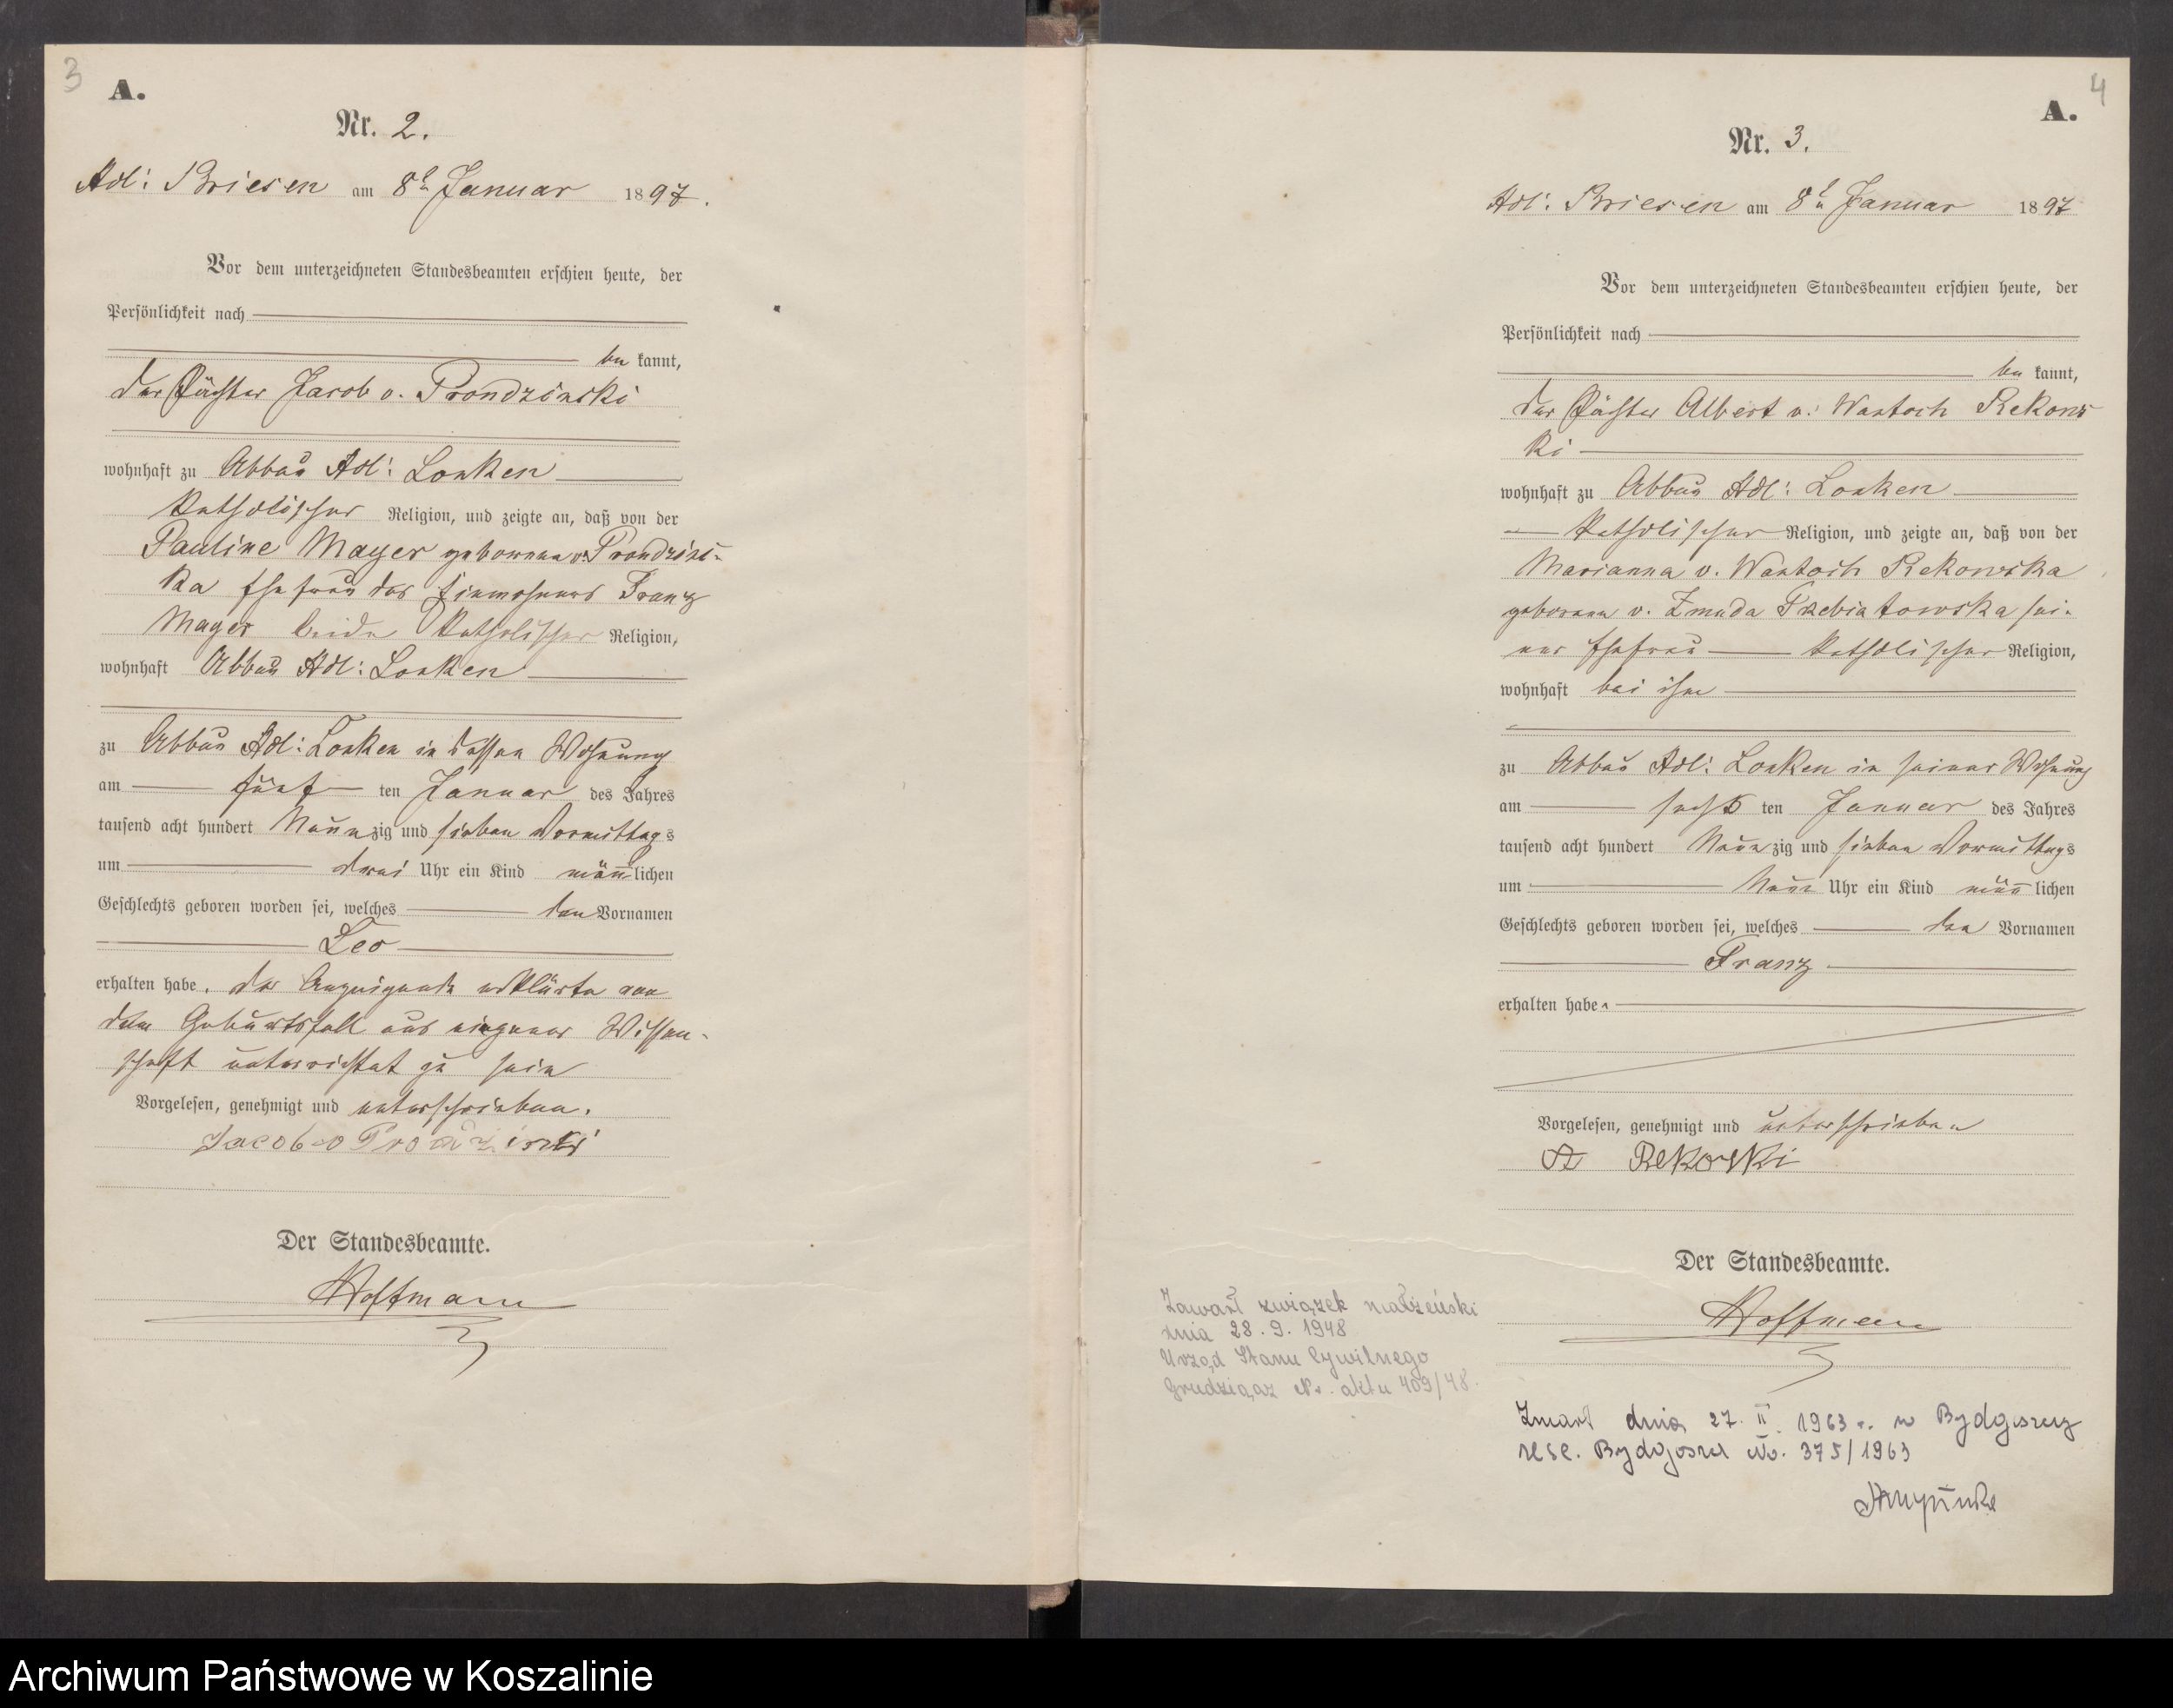 3
A.
Nr. 2.
Adl: Briesen am 8t Januar 1897.
Vor dem unterzeichneten Standesbeamten erschien heute, der
Persönlichkeit nach
be kannt,
der Pächter Jacob v. Prondzinski
wohnhaft zu Abbau Adl: Lonken
katholischer Religion, und zeigte an, daß von der
Pauline Mayer geborenen v. Prondzins-
ka Ehefrau des Einwohners Franz
Mayer beide katholischer Religion,
wohnhaft Abbau Adl: Lonken
zu Abbau Adl: Lonken in dessen Wohnung
am fünf ten Januar des Jahres
tausend acht hundert Neun zig und sieben Vormittags
um drei Uhr ein Kind männlichen
Geschlechts geboren worden sei, welches den Vornamen
Leo
erhalten habe. der Anzeigende erklärte von
dem Geburtsfall aus eigener Wissen-
schaft unterrichtet zu sein
Vorgelesen, genehmigt und unterschrieben.
Jacob v Prondzinski
Der Standesbeamte.
Hoffmann
4
A.
Nr. 3.
Adl: Briesen am 8t Januar 1897
Vor dem unterzeichneten Standesbeamten erschien heute, der
Persönlichkeit nach
be kannt,
der Pächter Albert v. Wantoch Rekows
ki
wohnhaft zu Abbau Adl: Lonken
katholischer Religion, und zeigte an, daß von der
Marianna v. Wantoch Rekowska
geborene v. Zmuda Trebiatowska sei-
ner Ehefrau katholischer Religion,
wohnhaft bei ihm
zu Abbau Adl: Lonken in seiner Wohnung
am sechs ten Januar des Jahres
tausend acht hundert Neun zig und sieben Vormittags
um Neun Uhr ein Kind männ lichen
Geschlechts geboren worden sei, welches den Vornamen
Franz
erhalten habe.
Vorgelesen, genehmigt und unterschrieben
A Rekoski
Der Standesbeamte.
Hoffmann
Zawarł związek małżeński
dnia 28. 9. 1948
Urząd Stanu Cywilnego
Grudziądz Nr. aktu 409/48.
Zmarł dnia 27. II. 1963 r. w Bydgoszczy
USC. Bydgoszcz Nr. 375/1963
Archiwum Państwowe w Koszalinie